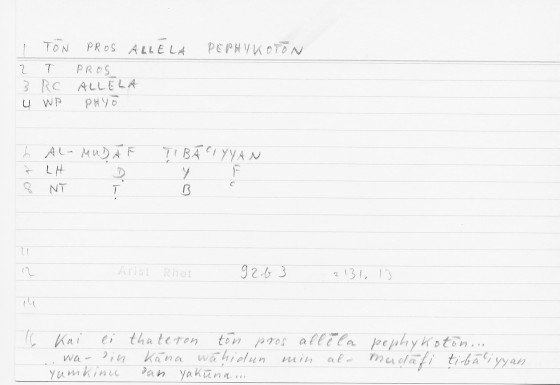 1 TŌN PROS ALLĒLA PEPHYKOTŌN
2 T PROS
3 RC ALLĒLA
4 WP PHYŌ
6 AL-MUḌĀF ṬIBĀʿIYYAN
7 LH Ḍ Y F
8 NT Ṭ B ʿ
11
12 Arist Rhet 92b3 =131.13
14
16 Kai ei thateron tōn pros allēla pephykotōn...
wa-ʾin kāna wāḥidun min al-muḍāfi ṭibāʿiyyan
yumkinu ʾan yakūna...